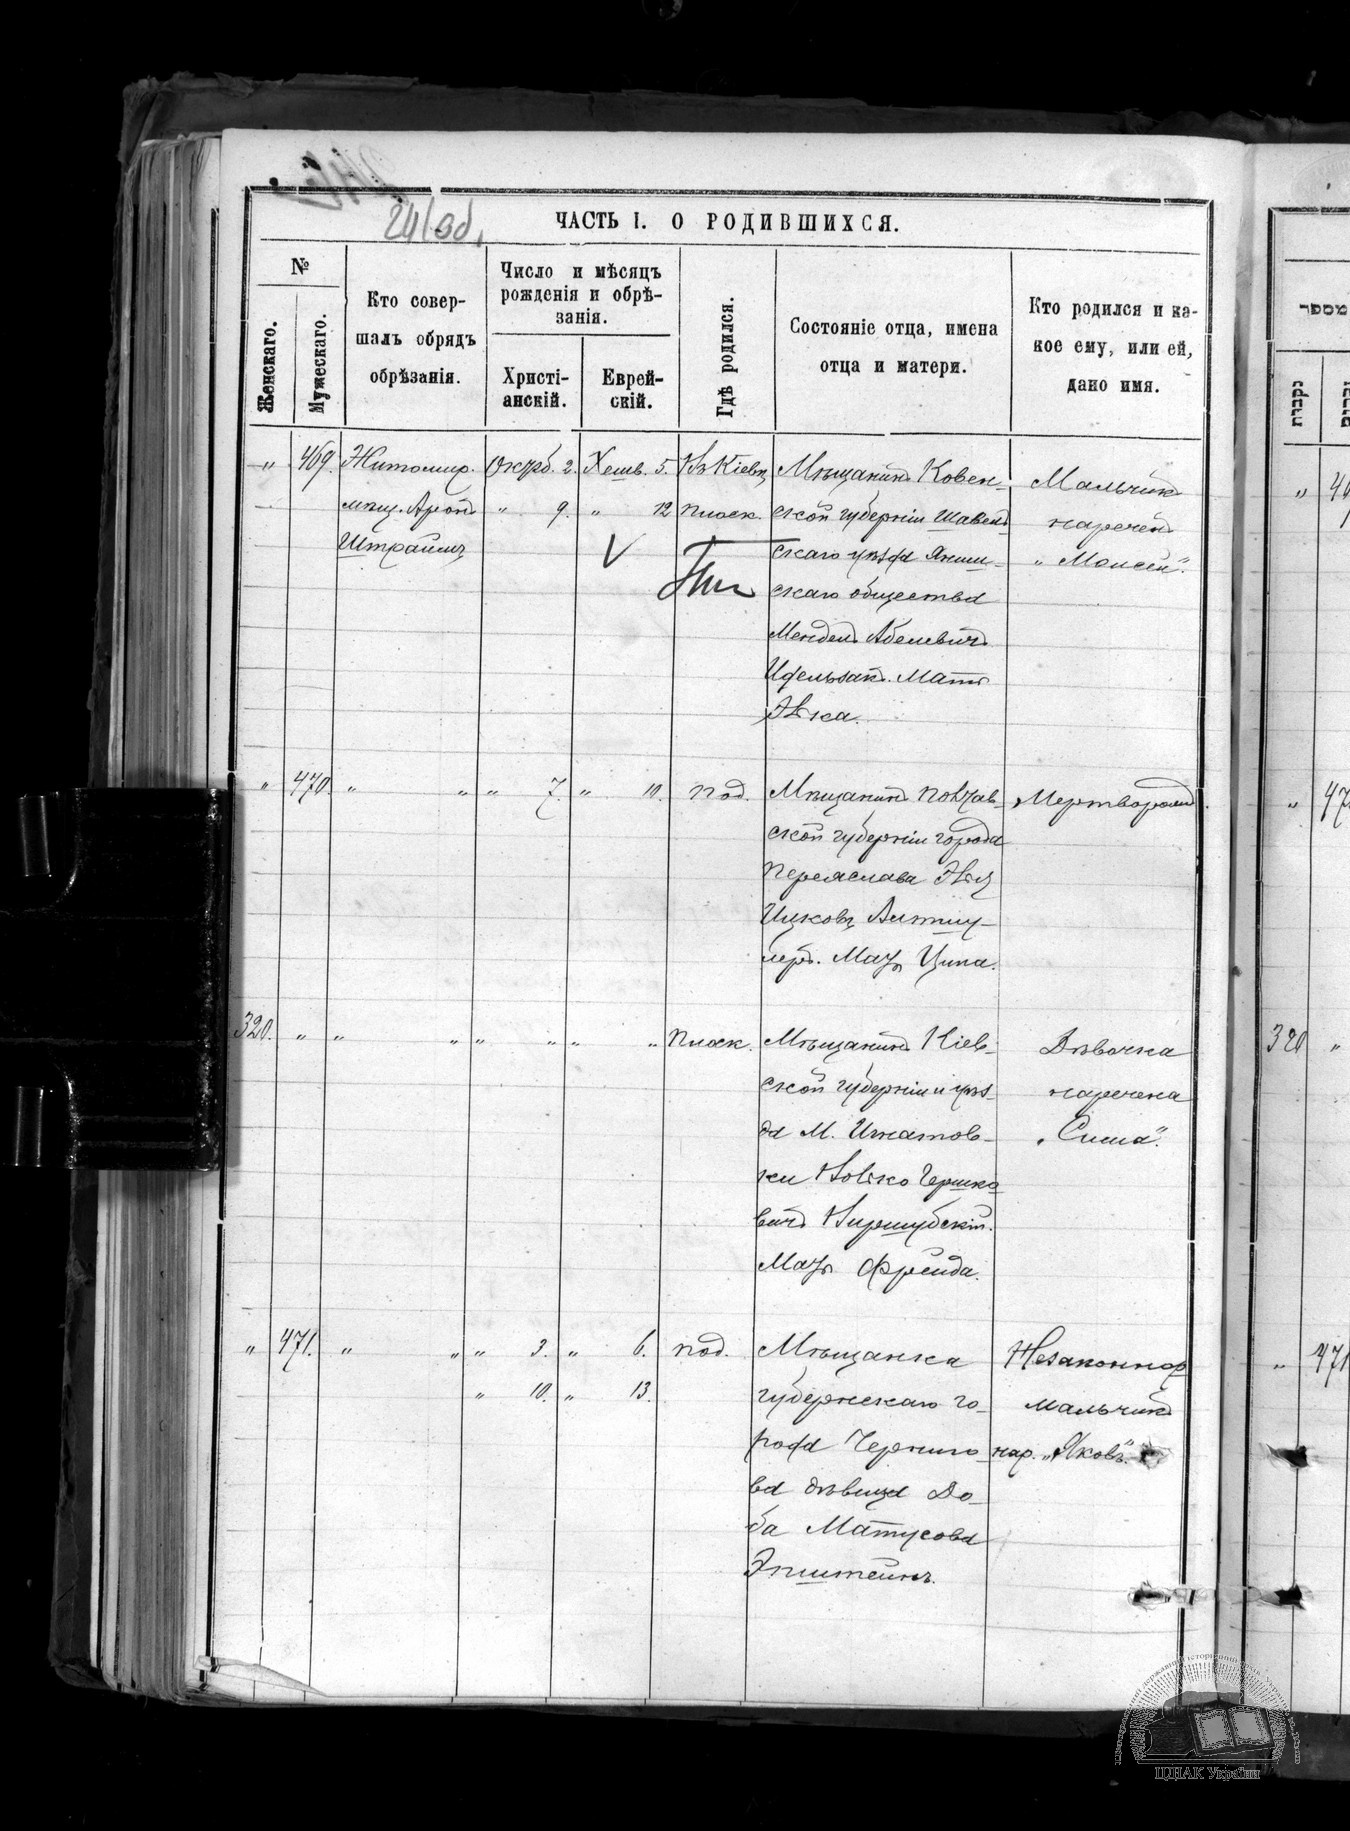 ЧАСТЬ I. О РОДИВШИХСЯ.
№
Женскаго.
Мужескаго.
Кто совер-
шалъ обрядъ
обрѣзанія.
Число и мѣсяцъ
рожденія и обрѣ-
занія.
Христі-
анскій.
Еврей-
скій.
Гдѣ родился.
Состояніе отца, имена
отца и матери.
Кто родился и ка-
кое ему, или ей,
дано имя.
" 469. Житомир. Октрб. 2. Хешв. 5. Въ Кіевѣ
мѣщ. Аронъ " 9. " 12 Плоск.
Штраймъ
Мѣщанинъ Ковен-
ской губерніи Шавель
скаго уѣзда Яниш-
скаго общества
Мендель Абелевичъ
Идельзакъ. Мать
Эвка.
Мальчикъ
нареченъ
"Моисей".
" 470. " " " 7. " 10. Под.
Мѣщанинъ Полтав-
ской губерніи города
Переяслава
Ицковъ Алтшу-
леръ. Мать Ципа.
Мертворожд.
320. " " " " " " " Плоск.
Мѣщанинъ Кіев-
ской губерніи и уѣз-
да М. Игнатов-
ки Волько Гершко
вичъ Виршубскій.
Мать Фрейда.
Дѣвочка
наречена
"Сима".
" 471. " " " 3. " 6. Под.
" 10. " 13.
Мѣщанка
губернскаго го-
рода Черниго-
ва дѣвица До-
ба Матусова
Эпштейнъ.
Незаконнор
мальчикъ
нар. "Яковъ".
מספר
נקבות
320
471
ЦДІАК України